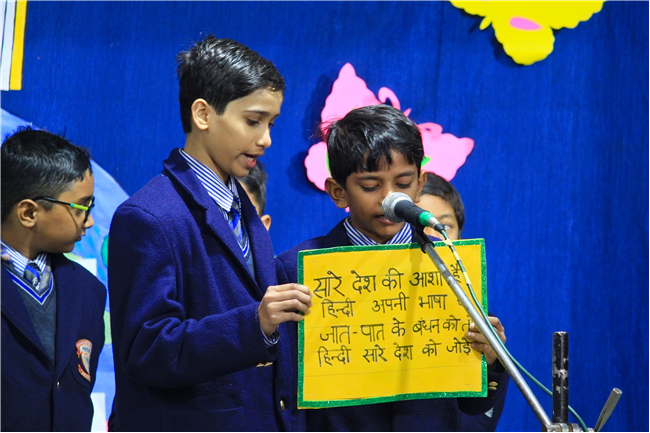 सारे देश की आशा है
हिन्दी अपनी भाषा है
जात-पात के बंधन को तो
हिन्दी सारे देश को जोड़े